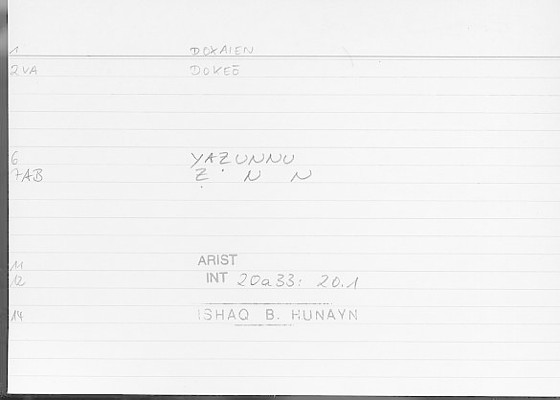 1 DOXAIEN
2VA DOKEŌ
6 YAẒUNNU
7AB Ẓ N N
11 ARIST
12 INT 20a33: 20.1
14 ISHAQ B. HUNAYN